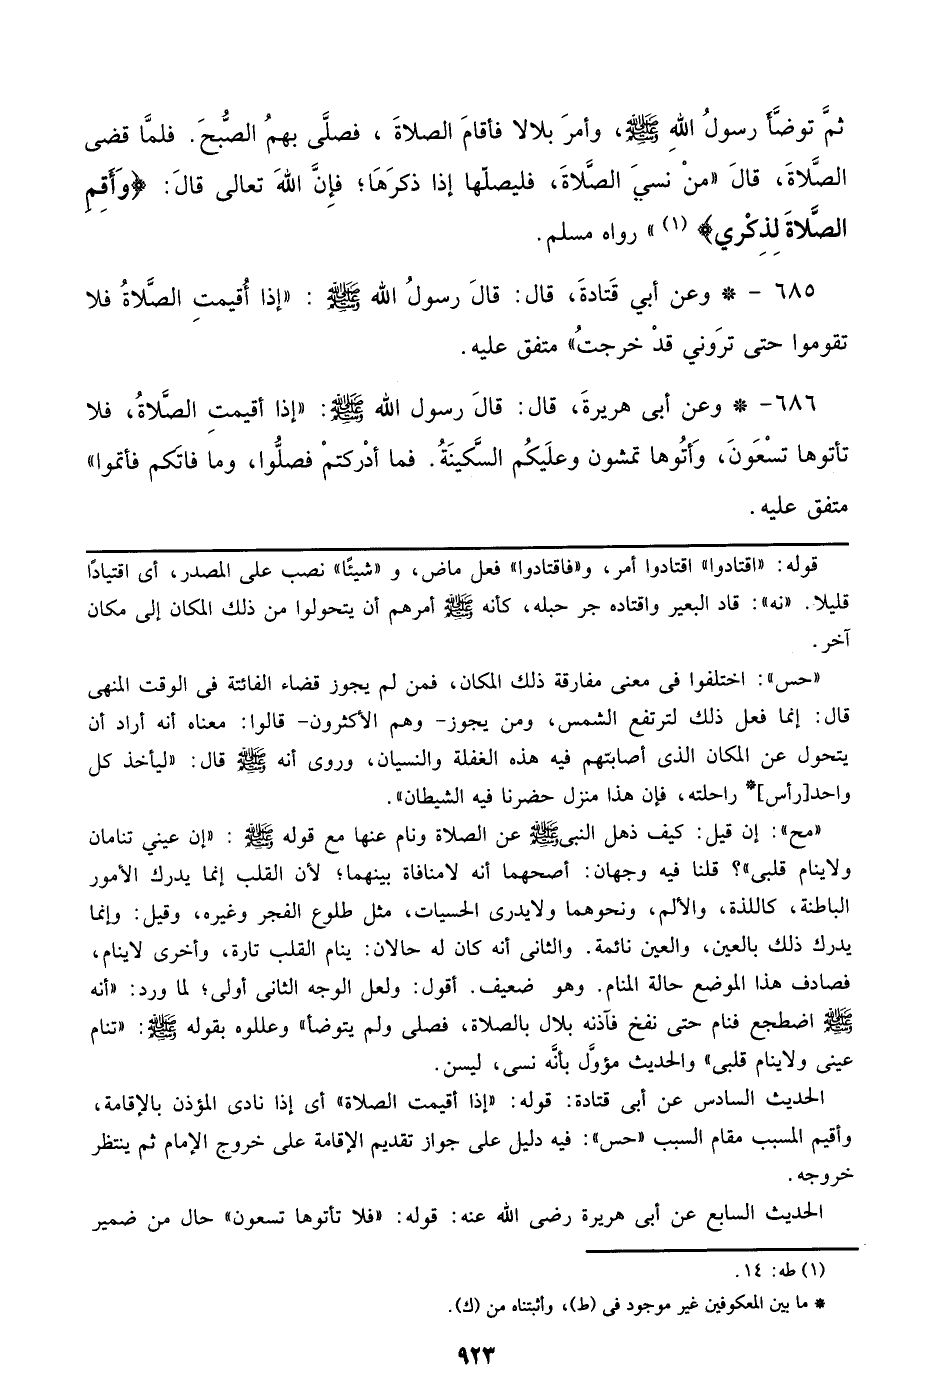 ثمَّ توضَّأَ رسولُ اللهِ ﷺ، وأمرَ بلالا فأقامَ الصلاةَ ، فصلَّى بهمُ الصُّبحَ. فلمَّا قضى
الصَّلاةَ، قالَ «منْ نسيَ الصَّلاةَ، فليصلّها إذا ذكرَهَا؛ فإِنَّ اللهَ تعالى قالَ: ﴿وَأَقِمِ
الصَّلاةَ لِذِكْرِي﴾ (١) » رواه مسلم.
٦٨٥ - * وعن أبي قَتادةَ، قال: قالَ رسولُ الله ﷺ : «إذا أُقيمتِ الصَّلاةُ فلا
تقوموا حتى ترَوني قدْ خرجتُ» متفق عليه.
٦٨٦- * وعن أبى هريرةَ، قال: قالَ رسول الله ﷺ: «إذا أقيمتِ الصَّلاةُ، فلا
تأتوها تسْعَونَ، وَأتُوها تمشون وعلَيكُم السَّكينَةُ. فما أدْركتمْ فصلُّوا، وما فاتَكم فأتموا»
متفق عليه.
قوله: «اقتادوا» اقتادوا أمر، و«فاقتادوا» فعل ماض، و «شيئًا» نصب على المصدر، أى اقتيادًا
قليلا. «نه»: قاد البعير واقتاده جر حبله، كأنه ﷺ أمرهم أن يتحولوا من ذلك المكان إلى مكان
آخر.
«حس»: اختلفوا فى معنى مفارقة ذلك المكان، فمن لم يجوز قضاء الفائتة فى الوقت المنهى
قال: إنما فعل ذلك لترتفع الشمس، ومن يجوز- وهم الأكثرون- قالوا: معناه أنه أراد أن
يتحول عن المكان الذى أصابتهم فيه هذه الغفلة والنسيان، وروى أنه ﷺ قال: «ليأخذ كل
واحد[رأس]* راحلته، فإن هذا منزل حضرنا فيه الشيطان».
«مح»: إن قيل: كيف ذهل النبىﷺ عن الصلاة ونام عنها مع قوله ﷺ : «إن عيني تنامان
ولاينام قلبى»؟ قلنا فيه وجهان: أصحهما أنه لامنافاة بينهما؛ لأن القلب إنما يدرك الأمور
الباطنة، كاللذة، والألم، ونحوهما ولايدرى الحسيات، مثل طلوع الفجر وغيره، وقيل: وإنما
يدرك ذلك بالعين، والعين نائمة. والثانى أنه كان له حالان: ينام القلب تارة، وأخرى لاينام،
فصادف هذا الموضع حالة المنام. وهو ضعيف. أقول: ولعل الوجه الثانى أولى؛ لما ورد: «أنه
ﷺ اضطجع فنام حتى نفخ فآذنه بلال بالصلاة، فصلى ولم يتوضأ» وعللوه بقوله ﷺ: «تنام
عينى ولاينام قلبى» والحديث مؤولَّ بأنَّه نسى، ليسن.
الحديث السادس عن أبى قتادة: قوله: «إذا أقيمت الصلاة» أى إذا نادى المؤذن بالإقامة،
وأقيم المسبب مقام السبب «حس»: فيه دليل على جواز تقديم الإقامة على خروج الإمام ثم ينتظر
خروجه.
الحديث السابع عن أبى هريرة رضى الله عنه: قوله: «فلا تأتوها تسعون» حال من ضمير
(١) طه: ١٤.
* ما بين المعكوفين غير موجود فى (ط)، وأثبتناه من (ك).
٩٢٣